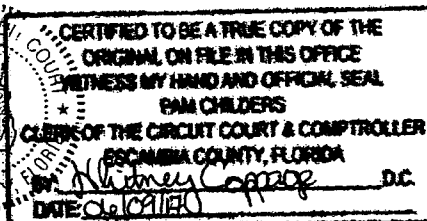 CERTIFIED TO BE A TRUE COPY OF THE
ORIGINAL ON FILE IN THIS OFFICE
WITNESS MY HAND AND OFFICIAL SEAL
PAM CHILDERS
CLERK OF THE CIRCUIT COURT & COMPTROLLER
ESCAMBIA COUNTY, FLORIDA
BY: Whitney Coppage D.C.
DATE:
COURT
FLORI